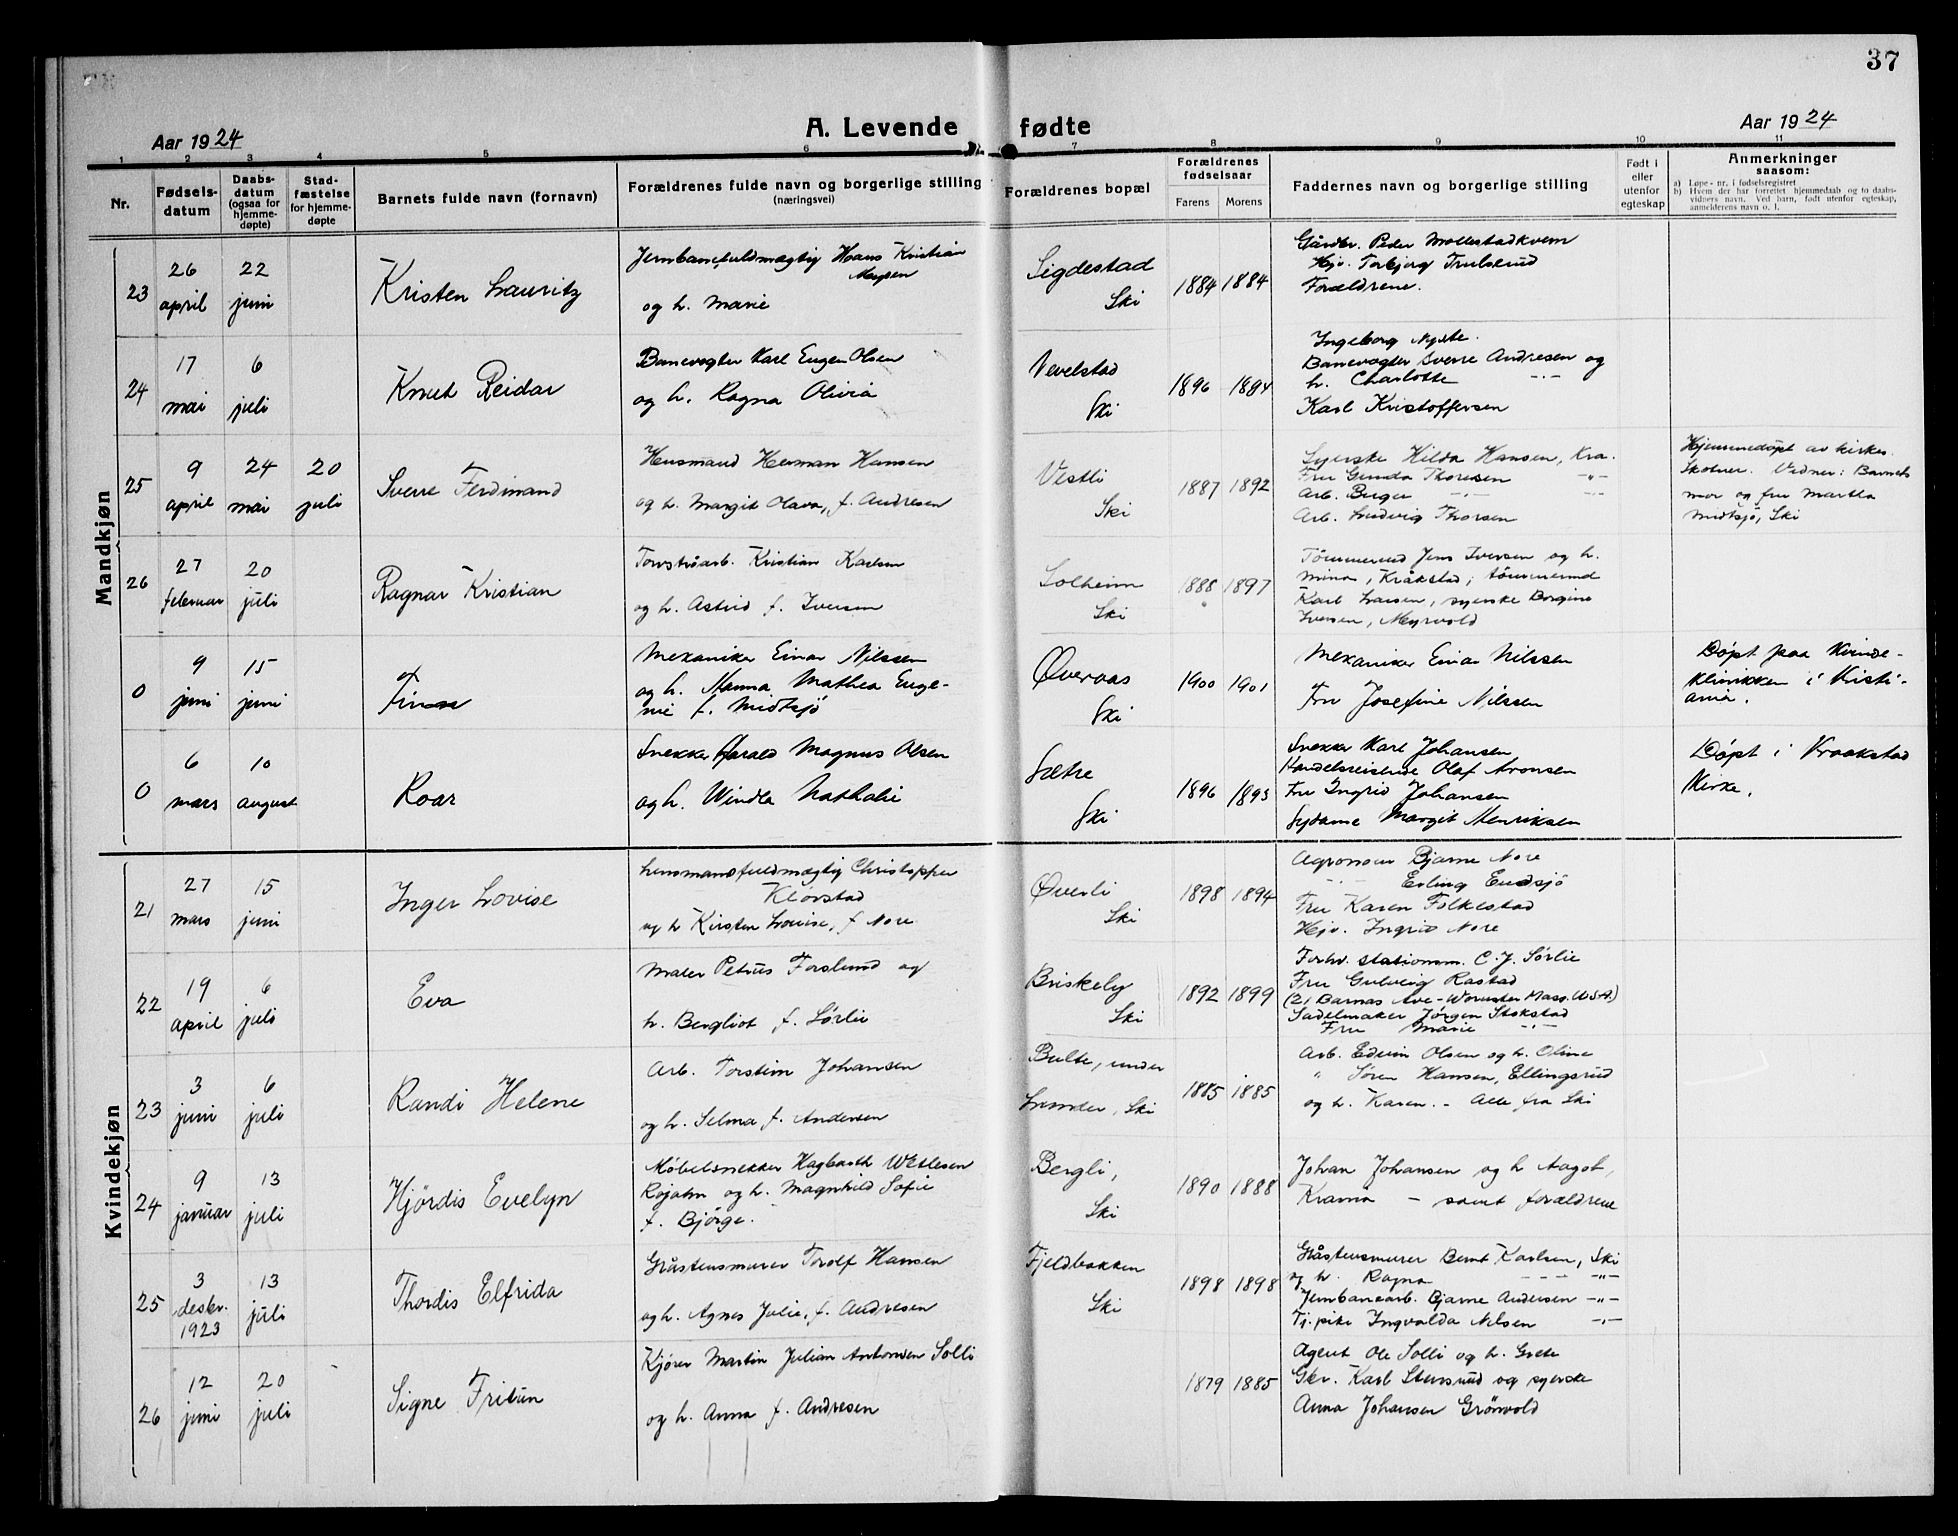 37
Aar 1924
A. Levende fødte
Aar 1924
1 2 3 4 5 6 7 8 9 10 11
Nr.
Fødsels-
datum
Daabs-
datum
(ogsaa for
hjemme-
døpte)
Stad-
fæstelse
for hjemme-
døpte
Barnets fulde navn (fornavn)
Forældrenes fulde navn og borgerlige stilling
(næringsvei)
Forældrenes bopæl
Forældrenes
fødselsaar
Farens Morens
Faddernes navn og borgerlige stilling
Født i
eller
utenfor
egteskap
Anmerkninger
saasom:
a) Løpe-nr. i fødselsregistret
b) Hvem der har forrettet hjemmedaab og to daabs-
vidners navn. Ved barn, født utenfor egteskap,
anmelderens navn o. l.
Mandkjøn
23
26
april
22
juni
Kristen Lauritz
Jernbanefuldmægtig Hans Kristian
og h. Marie
Sigdestad
Ski
1884 1884
Gårdbr. Peder Mollestadkvern
Hjv. Torbjørg Trulserud
Forældrene.
24
17
mai
6
juli
Knut Reidar
Banevogter Karl Eugen Olsen
og h. Ragna Olivia
Vevelstad
Ski
1896 1894
Ingeborg
Banevogter Sverre Andresen og
h. Charlotte -"-
Karl Kristoffersen
25
9
april
24
mai
20
juli
Sverre Ferdinand
Husmand Herman Hansen
og h. Margit Olava, f. Andresen
Vestli
Ski
1887 1892
Syerske Hilda Hansen, Kra.
Fru Gunda Thoresen -"-
Arb. Birger -"- -"-
Arb. Ludvig Thorsen
Hjemmedøpt av kirkes.
Skotner. Vidner: Barnets
mor og fru Martha
Midtsjø, Ski
26
27
februar
20
juli
Ragnar Kristian
Torvstrøarb. Kristian Karlsen
og h. Astrid f. Iversen
Solheim
Ski
1888 1897
Tømmermd Jens Iversen og h.
Mina, Kråkstad; tømmermd
Karl Larsen, syerske Borgine
Iversen, Myrvold
0
9
juni
15
juni
Finn
Mekaniker Einar Nilssen
og h. Nanna Mathea Euge-
nie f. Midtsjø
Øveraas
Ski
1900 1901
Mekaniker Einar Nilssen
Fru Josefine Nilssen
Døpt paa Kvinde-
klinikken i Kristi-
ania.
0
6
mars
10
august
Roar
Snekker Harald Magnus Olsen
og h. Windla Nathalie
Sætre
Ski
1896 1893
Snekker Karl Johansen
Handelsreisende Olaf Aronsen
Fru Ingrid Johansen
Sydame Margit Henriksen
Døpt i Kraakstad
Kirke.
Kvindekjøn
21
27
mars
15
juni
Inger Lovise
Lensmansfuldmægtig Christopher
Klovstad
og h Kirsten Louise, f Nore
Øverli
Ski
1898 1894
Agronom Bjarne Nore
-"- Erling Endsjø
Fru Karen Folkestad
Hjv. Ingrid Nore
22
19
april
6
juli
Eva
Maler Petrus Forslund og
h. Bergliot f. Sørlie
Briskeby
Ski
1892 1899
Forhv. stationsm. C. J. Sørlie
Fru Gulveig Rastad
(21 Barnas Ave - Worcester Mass. U.S.A.)
Sadelmaker Jørgen Stokstad
Fru Marie -"-
23
3
juni
6
juli
Randi Helene
Arb. Torstein Johansen
og h. Selma f. Andersen
Bulte, under
Lunder, Ski
1885 1885
Arb. Edvin Olsen og h. Oline
" Søren Hansen, Ellingsrud
og h. Karen. - Alle fra Ski
24
9
januar
13
juli
Hjørdis Evelyn
Møbelsnekker Hagbarth Wetlesen
Rojahn og h. Magnhild Sofie
f. Bjørge.
Bergli,
Ski
1890 1888
Johan Johansen og h Aagot,
Krania - samt forældrene
25
3
desbr.
1923
13
juli
Thordis Elfrida
Gråstensmurer Torolf Hansen
og h. Agnes Julie, f. Andresen
Fjeldbakken
Ski
1898 1898
Gråstensmurer Bernt Karlsen, Ski
og h. Ragna - - - -"-
Jernbanearb. Bjarne Andersen -"-
Tj.pike Ingvalda Nilsen -"-
26
12
juni
20
juli
Signe Fritun
Kjører Martin Julian Antonsen Solli
og h. Anna f. Andresen
1879 1885
Agent Ole Solli og h. Grete
Gbr. Karl Stensrud og syerske
Anna Johansen Grønvold